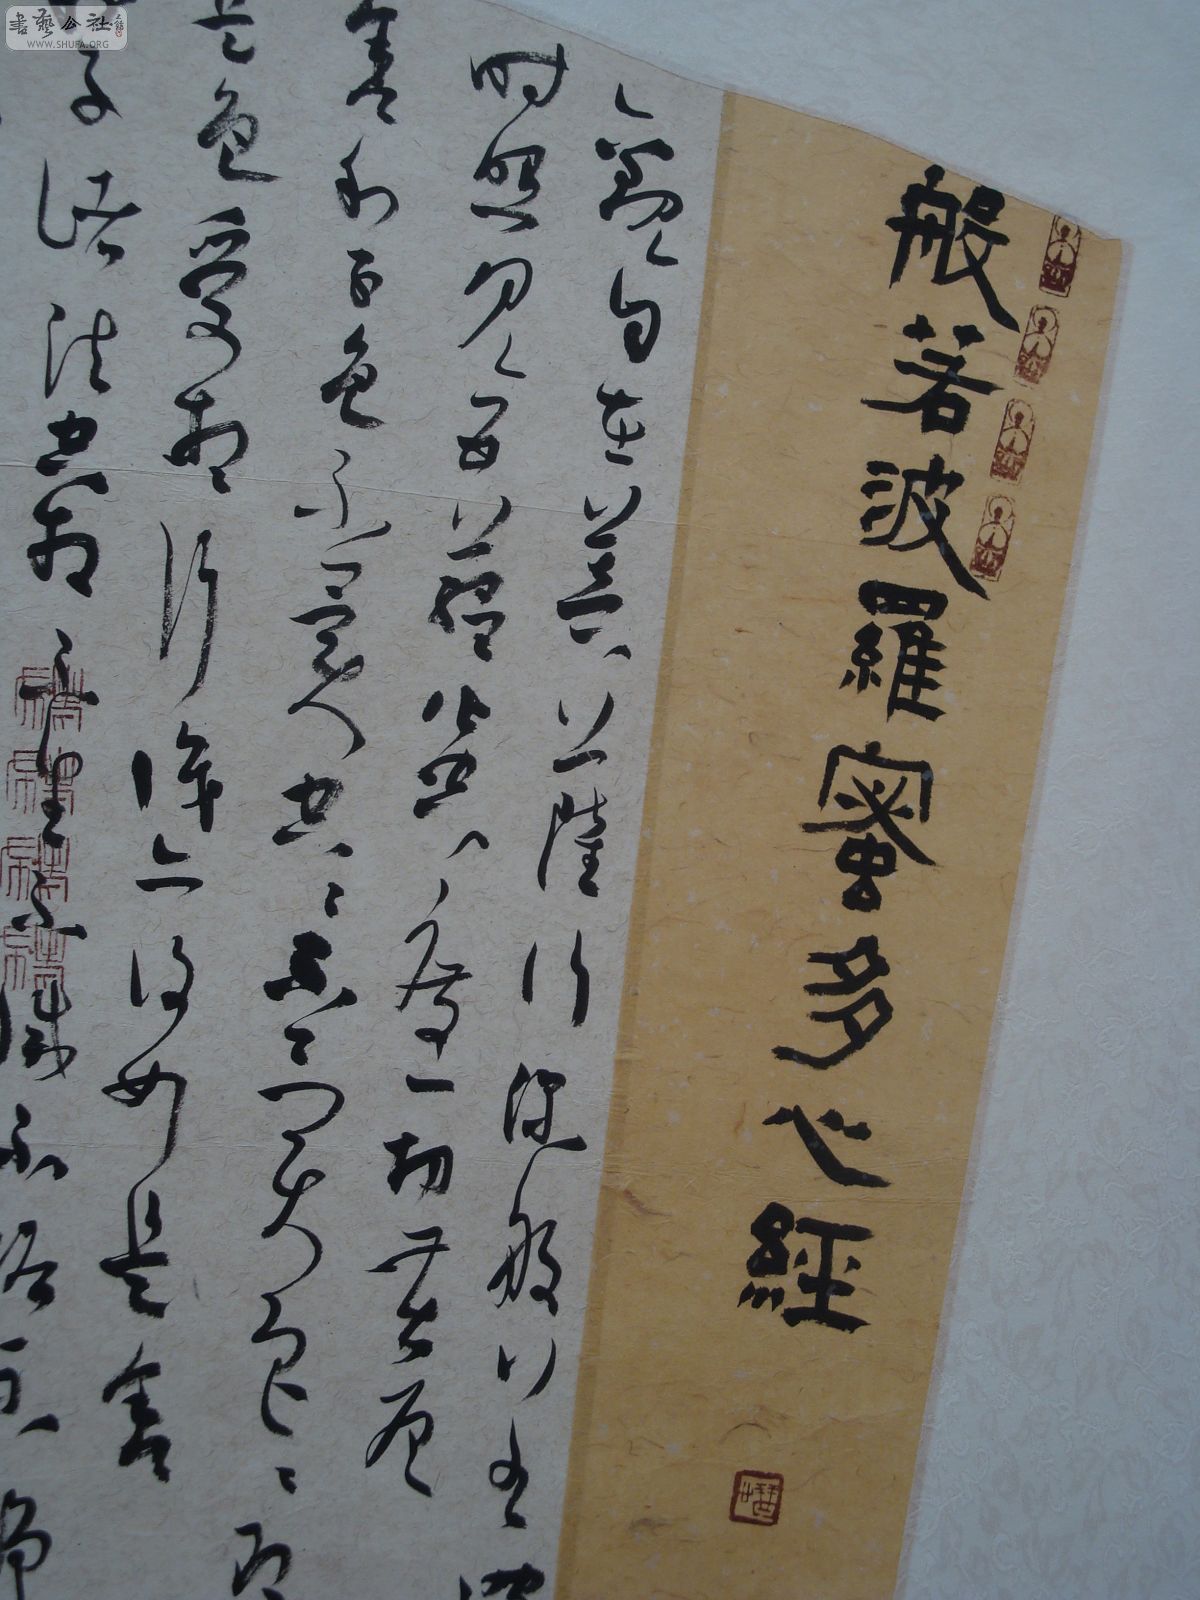 書藝公社
WWW.SHUFA.ORG
般若波羅蜜多心經
觀自在菩薩行深般若
時照見五蘊皆空度一切苦厄
舍利子色不異空〻不異色〻即
是色受想行識亦復如是舍
子諸法空相不生不滅不垢不淨